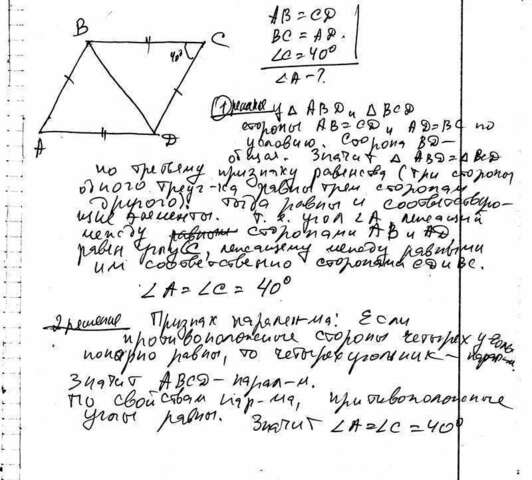 B
C
40°
A
D
AB = CD
BC = AD.
∠C = 40°
∠A - ?
1 решение У △ ABD и △ BCD
стороны AB = CD и AD = BC по
условию. Сторона BD -
общая. Значит △ ABD = △ BCD
по третьему признику равенства (три стороны
одного треуг-ка равны трем сторонам
другого). Тогда равны и соответствую-
щие элементы. Т.к. угол ∠A, лежащий
между сторонами AB и AD
равен углу C, лежащему между равными
им соответственно сторонами CD и BC.
∠A = ∠C = 40°
2 решение Признак паралел-ма: Если
противоположные стороны четырехугольн
попарно равны, то четырехугольник - парал-м.
Значит ABCD - парал-м.
По свойствам пар-ма, противоположные
углы равны. Значит ∠A = ∠C = 40°